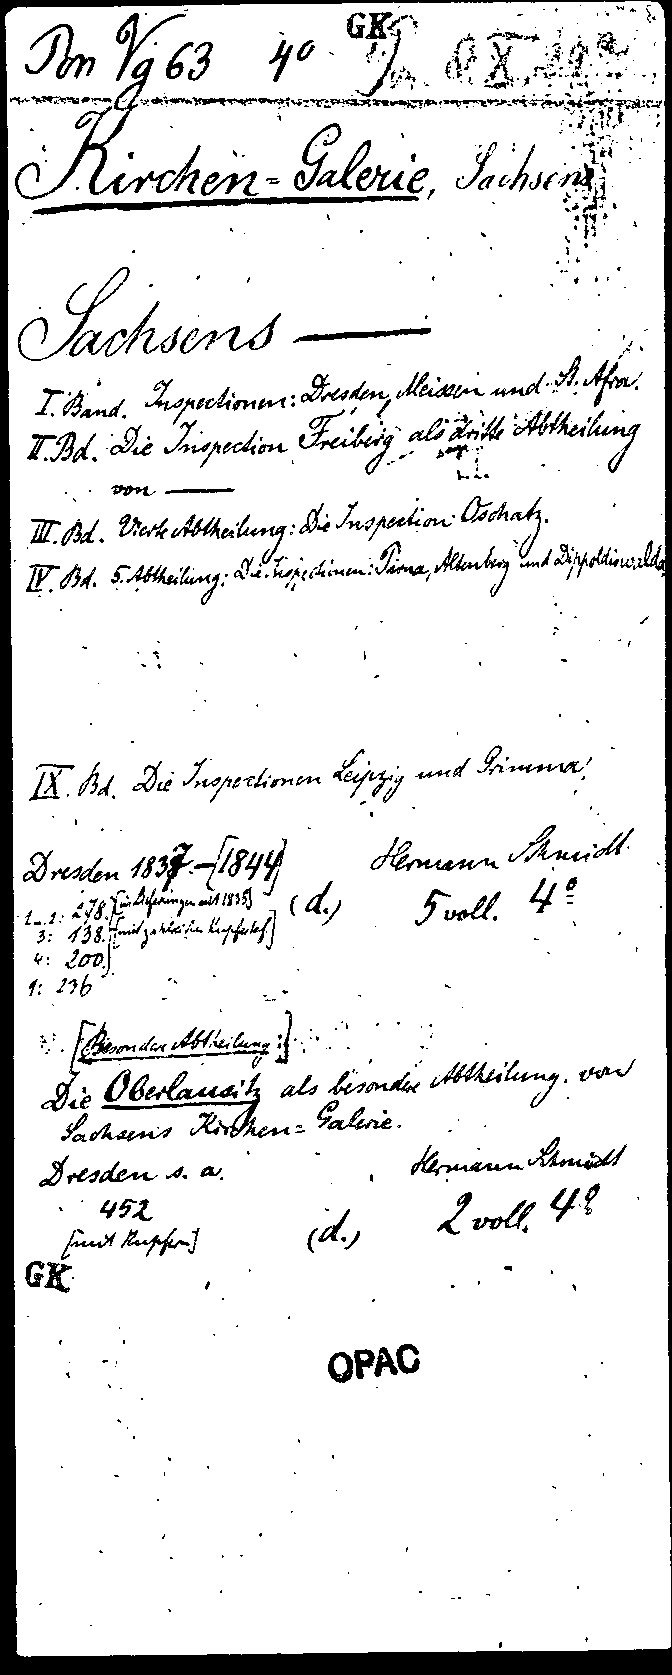 GK
Pon Vg 63 4°
Kirchen=Galerie, Sachsens
Sachsens —
I. Band. Inspectionen: Dresden, Meissen und St. Afra.
II. Bd. Die Inspection Freiberg als dritte Abtheilung
von —
III. Bd. Vierte Abtheilung: Die Inspection: Oschatz.
IV. Bd. 5. Abtheilung: Die Inspectionen: Pirna, Altenberg und Dippoldiswalda
IX. Bd. Die Inspectionen Leipzig und Grimma.
Dresden 1837.—[1844] Hermann Schmidt
1–2: 278. [in Lieferungen seit 1835] (d.) 5 voll. 4°
3: 138. [mit zahlreichen Kupfertaf.]
4: 200.
9: 236
[Besondere Abtheilung:]
Die Oberlausitz als besondere Abtheilung von
Sachsens Kirchen=Galerie.
Dresden s. a. Hermann Schmidt
452
[mit Kupfern] (d.) 2 voll. 4°
GK
OPAC